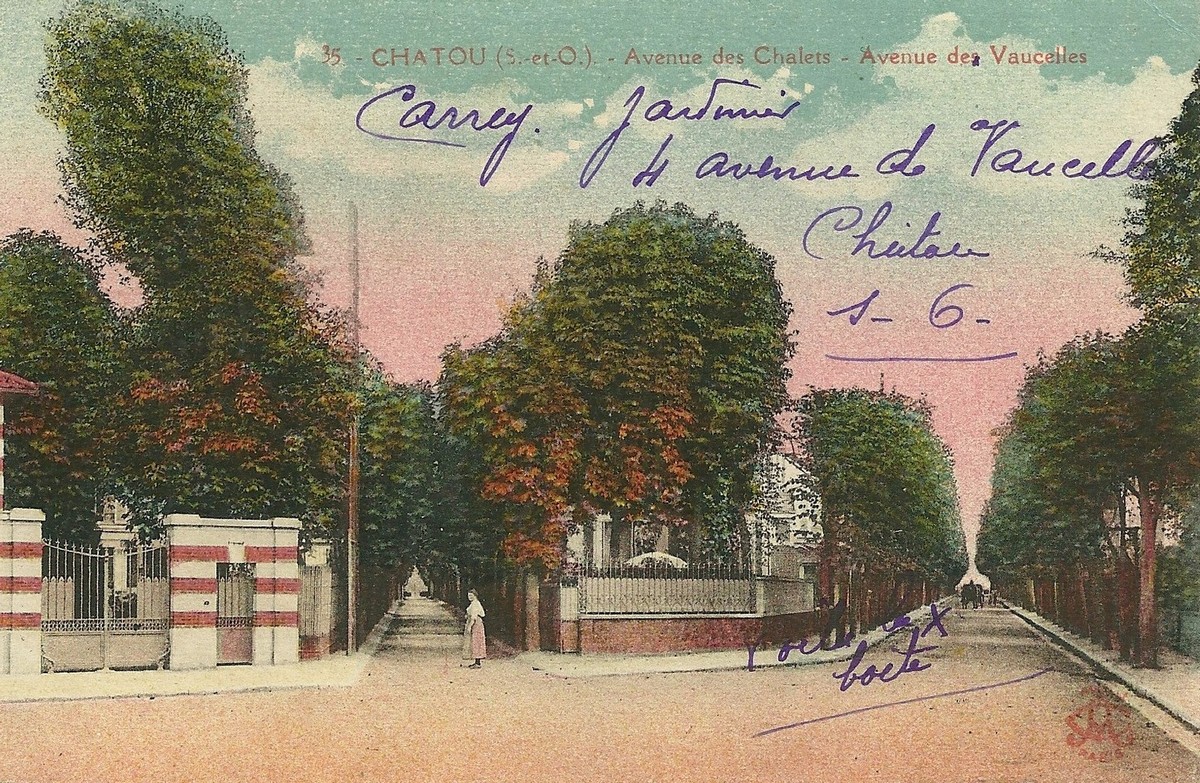 35 - CHATOU (S.-et-O.) - Avenue des Chalets - Avenue des Vaucelles
Carrey. Jardinier
4 avenue de Vaucelle
Chatou
S - O -
boete
PARIS